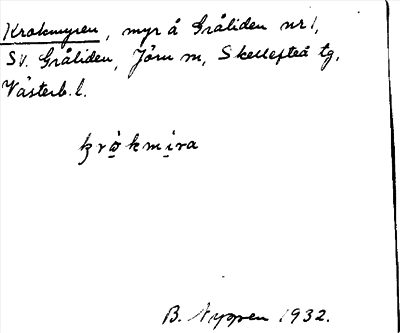 Krokmyren, myr å Gråliden nr 1,
Sv. Gråliden, Jörn m, Skellefteå tg,
Västerb. l.
krọ̀kmịra
B. Nyppen 1932.